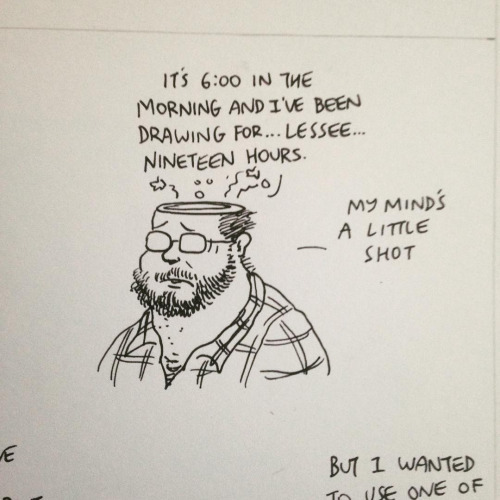 IT'S 6:00 IN THE
MORNING AND I'VE BEEN
DRAWING FOR... LESSEE...
NINETEEN HOURS.
MY MIND'S
A LITTLE
SHOT
BUT I WANTED
TO USE ONE OF